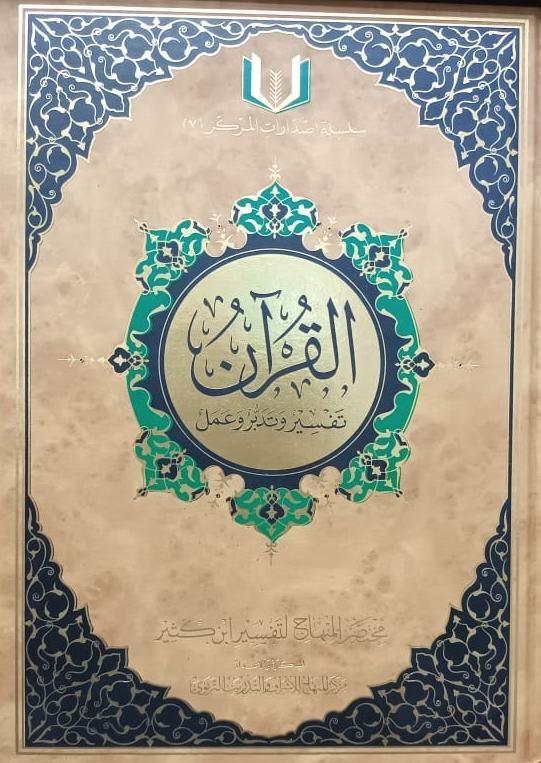 سلسلة اصدارات المركز (٧)
القُرآنُ
تَفْسِيْر وَتَدَبُّر وَعَمَل
مختصر المنهاج لتفسير ابن كثير
مركز المنهاج للإشراف والتدريب التربوي